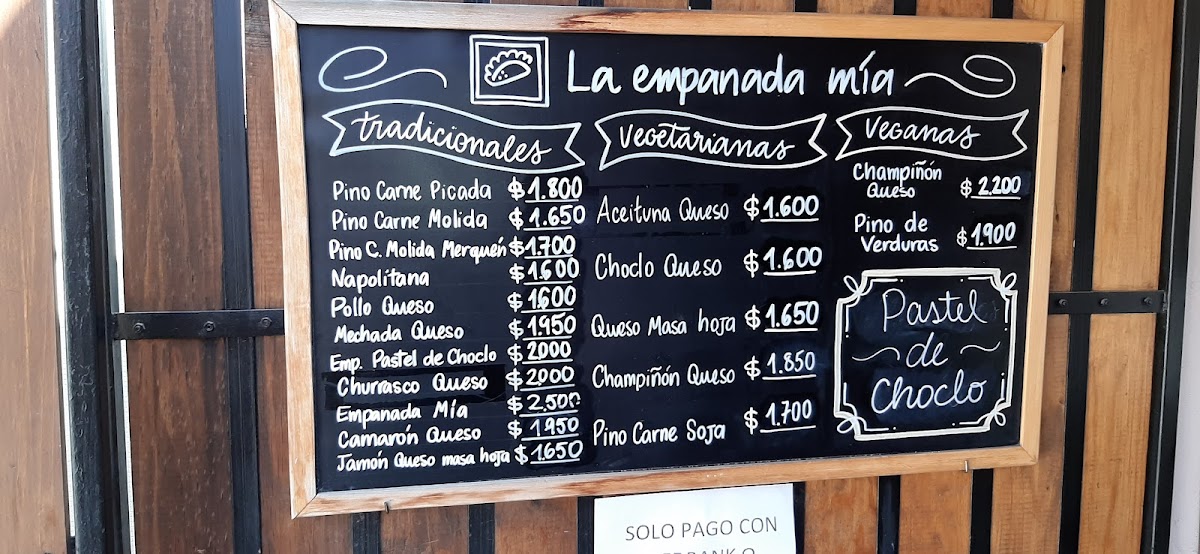 La empanada mía
tradicionales
Pino Carne Picada $1.800
Pino Carne Molida $1.650
Pino C. Molida Merquén $1.700
Napolitana $1.600
Pollo Queso $1.600
Mechada Queso $1.950
Emp. Pastel de Choclo $2.000
Churrasco Queso $2.000
Empanada Mía $2.500
Camarón Queso $1.950
Jamón Queso masa hoja $1.650
vegetarianas
Aceituna Queso $1.600
Choclo Queso $1.600
Queso Masa hoja $1.650
Champiñón Queso $1.850
Pino Carne Soja $1.700
Veganas
Champiñón
Queso $2.200
Pino de
Verduras $1.900
Pastel
de
Choclo
SOLO PAGO CON